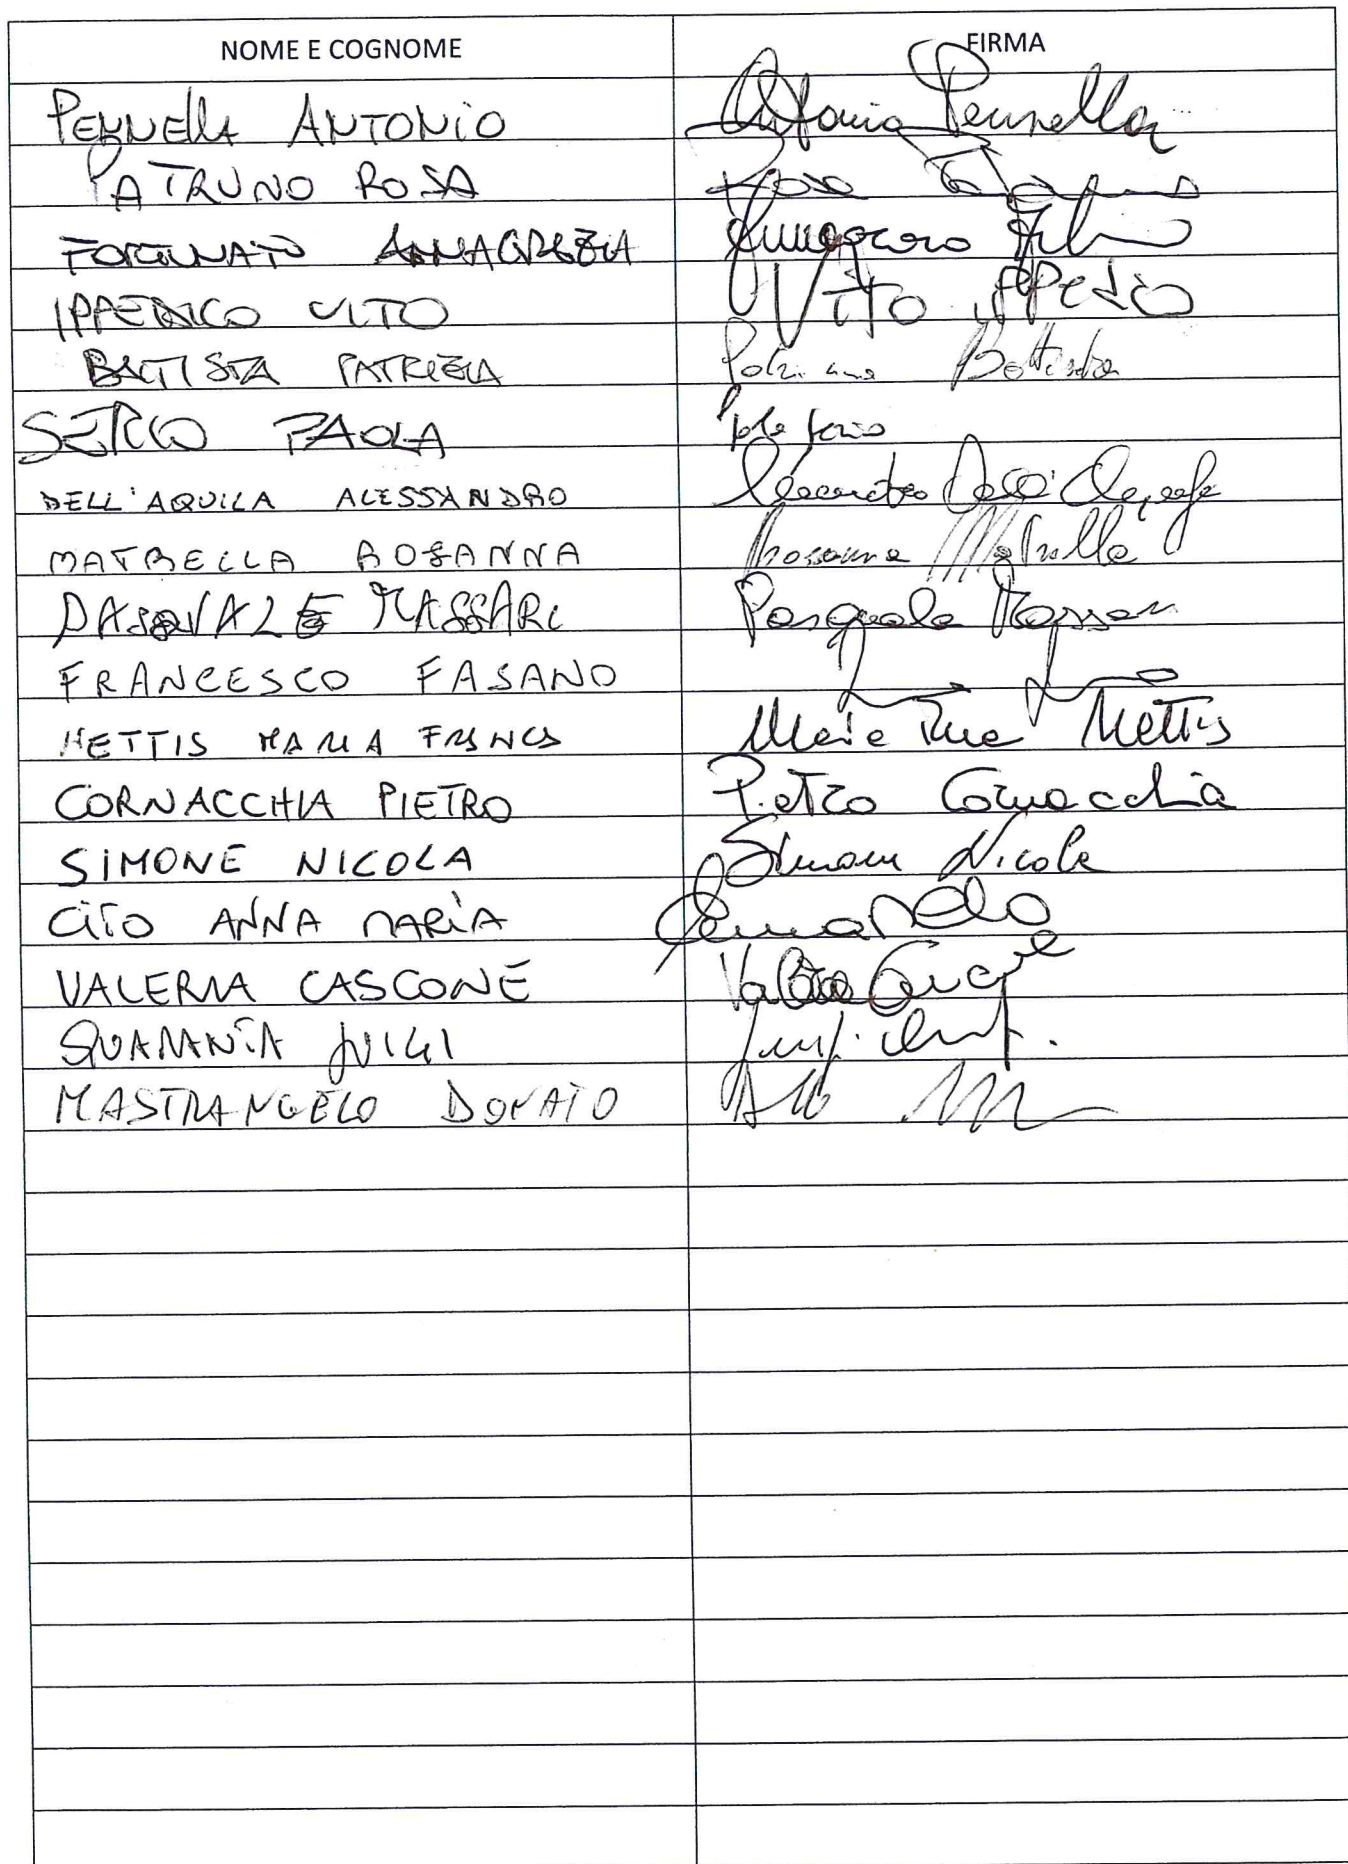 NOME E COGNOME FIRMA
PENNELLA ANTONIO Antonio Pennella
PATRUNO ROSA Rosa
FORTUNATO ANNAGRAZIA
IPPEDICO VITO VITO IPPEDICO
BATTISTA PATRIZIA Battista
SERIO PAOLA
DELL'AQUILA ALESSANDRO Alessandro Dell'Aquila
MATRELLA ROSANNA Rosanna Matrella
PASQUALE MASSARI Pasquale Massari
FRANCESCO FASANO
NETTIS MARIA FRANCA Maria Nettis
CORNACCHIA PIETRO Pietro Cornacchia
SIMONE NICOLA Simone Nicola
CITO ANNA MARIA
VALERIA CASCONE Valeria Cascone
QUARANTA LUIGI
MASTRANGELO DONATO